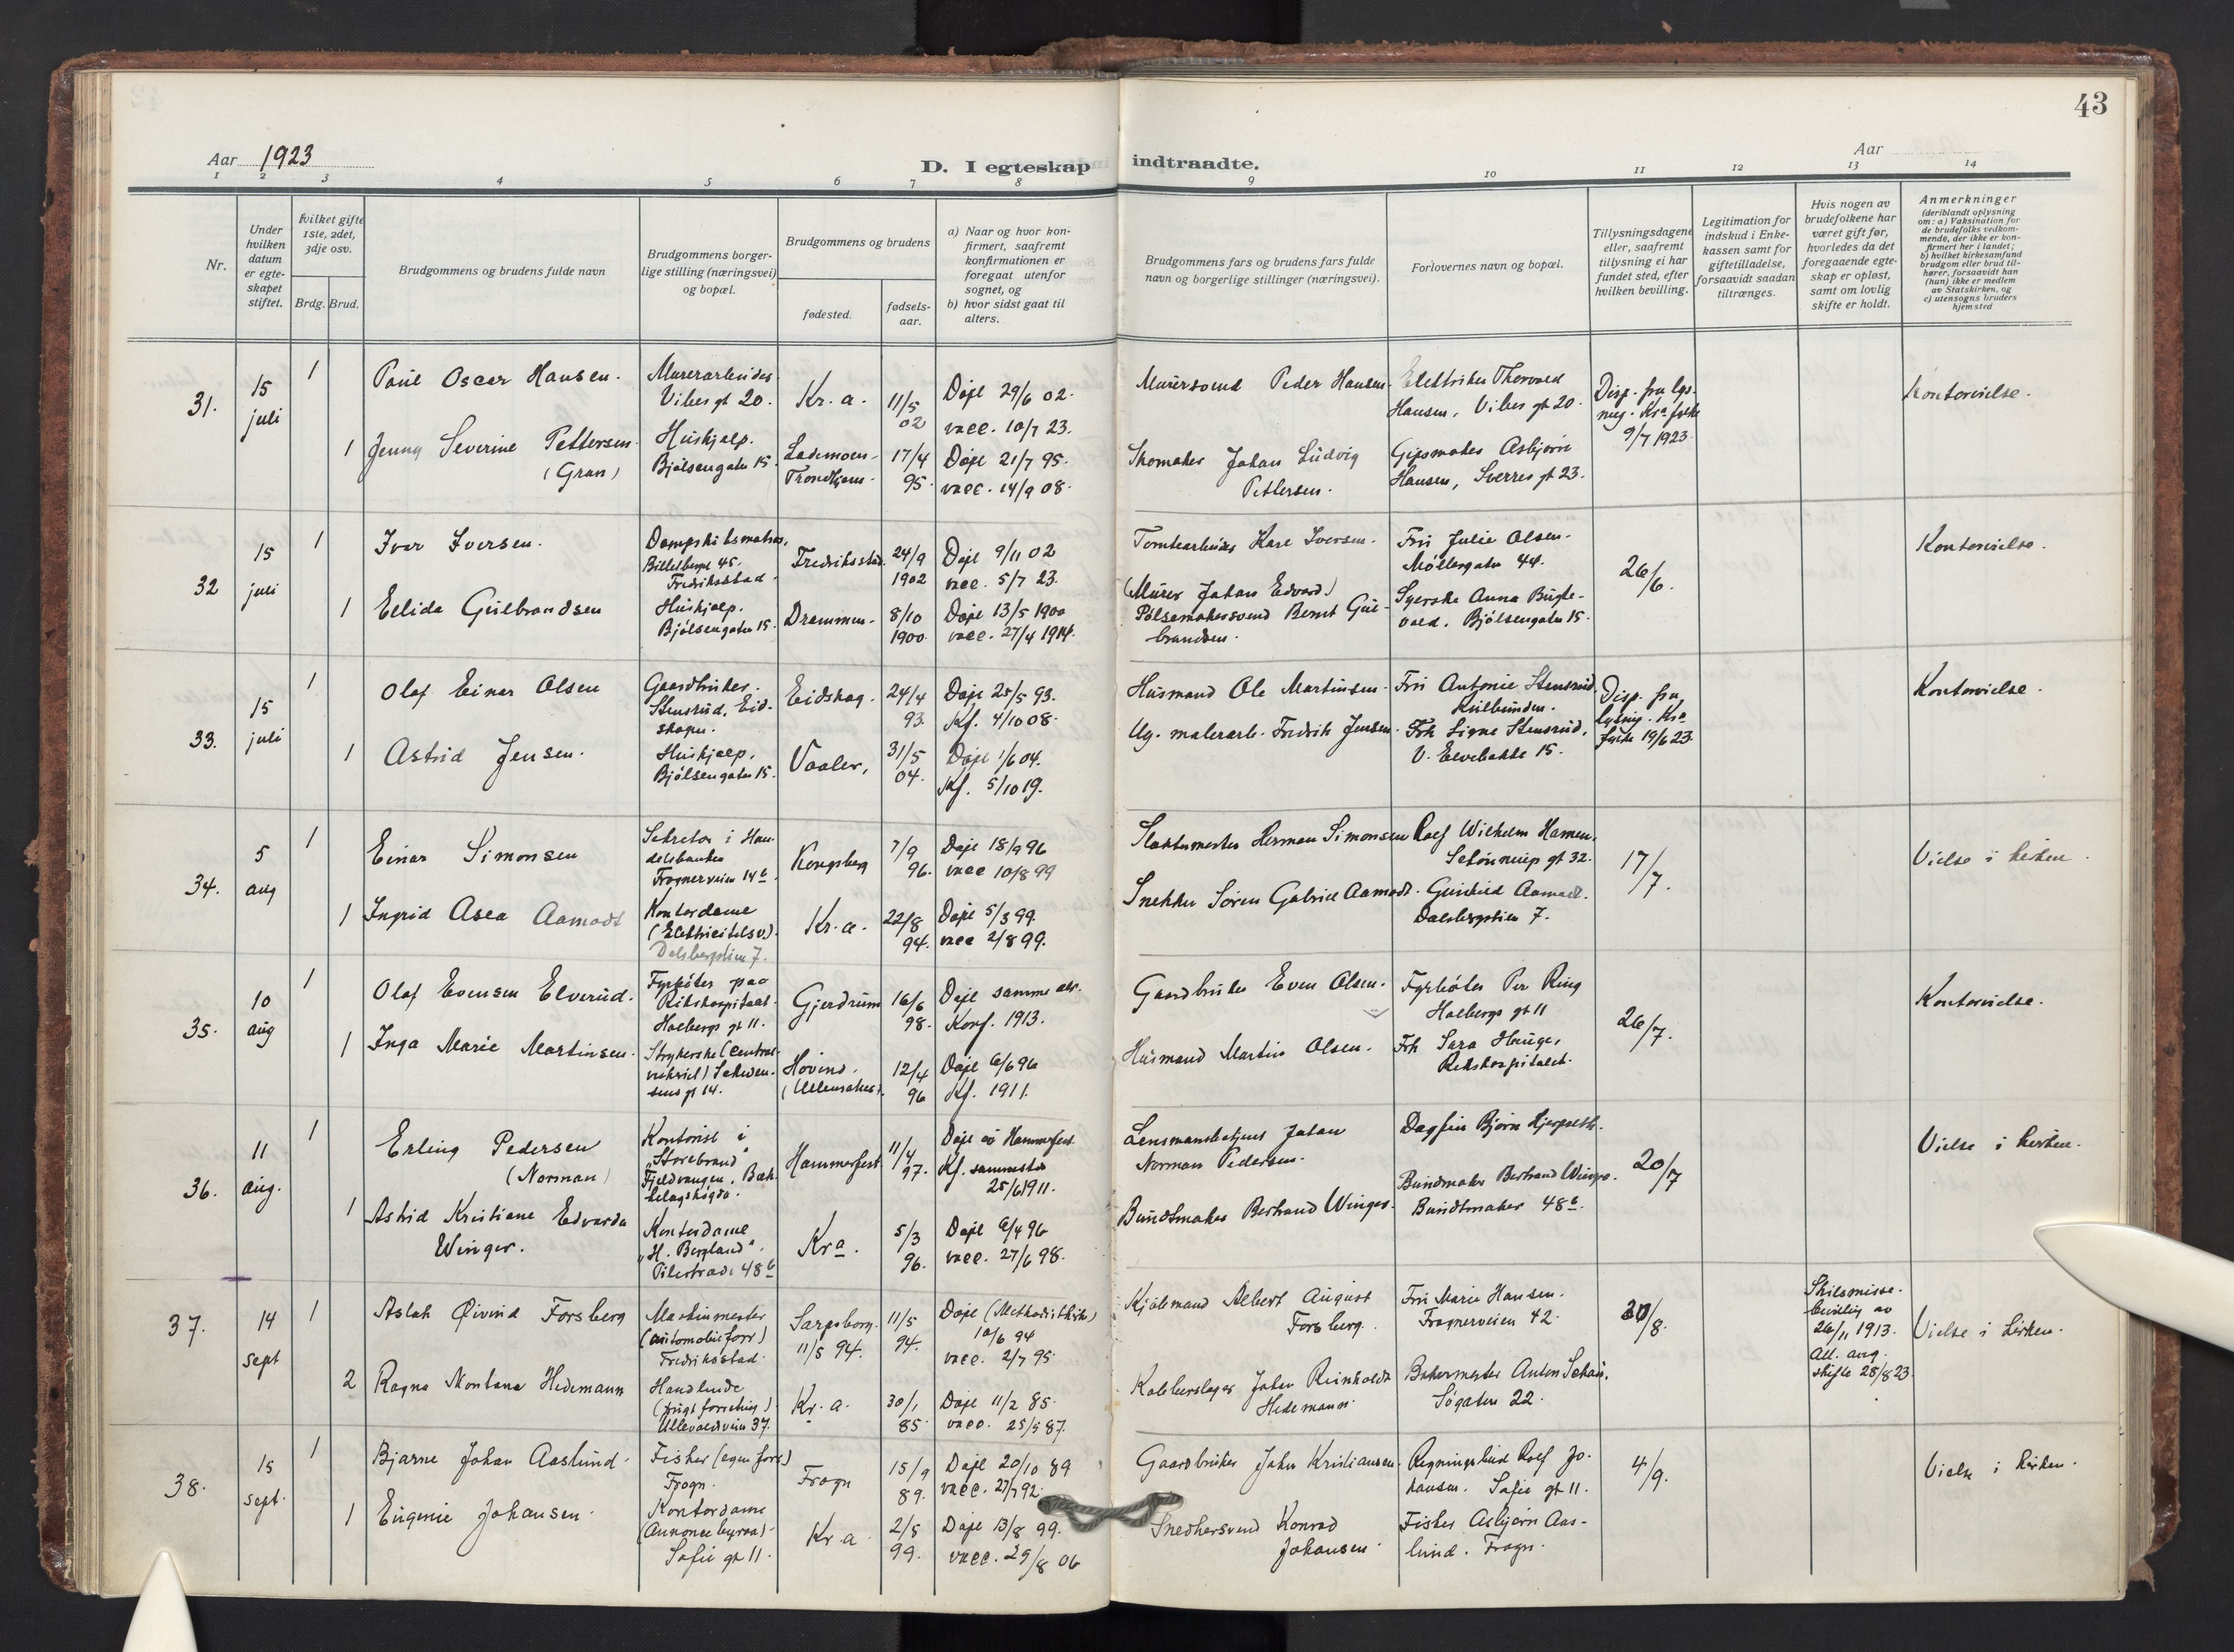 43
Aar 1923
D. I egteskap indtraadte.
Aar
1 2 3 4 5 6 7 8 9 10 11 12 13 14
Nr.
Under hvilken datum er egteskapet stiftet.
Hvilket gifte 1ste, 2det, 3dje osv.
Brdg. Brud.
Brudgommens og brudens fulde navn
Brudgommens borgerlige stilling (næringsvei) og bopæl.
Brudgommens og brudens
fødested.
fødselsaar.
a) Naar og hvor konfirmert, saafremt konfirmationen er foregaat utenfor sognet, og
b) hvor sidst gaat til alters.
Brudgommens fars og brudens fars fulde navn og borgerlige stillinger (næringsvei).
Forlovernes navn og bopæl.
Tillysningsdagene eller, saafremt tillysning ei har fundet sted, efter hvilken bevilling.
Legitimation for indskud i Enkekassen samt for giftetilladelse, forsaavidt saadan tiltrænges.
Hvis nogen av brudefolkene har været gift før, hvorledes da det foregaaende egteskap er opløst, samt om lovlig skifte er holdt.
Anmerkninger
(deriblandt oplysning om: a) Vaksination for de brudefolks vedkommende, der ikke er konfirmert her i landet; b) hvilket kirkesamfund brudgom eller brud tilhører, forsaavidt han (hun) ikke er medlem av Statskirken, og c) utensogns bruders hjemsted
31.
15 juli
1
Paul Oscar Hansen.
Murerarbeider
Vibes gt 20.
Kr.a.
11/5 02
Døpt 29/6 02.
vacc. 10/7 23.
Murersvend Peder Hansen.
Elektriker Thorvald
Hansen, Vibes gt 20.
Disp. fra lysning. Kra fylke
9/7 1923.
Kontorvielse.
1
Jenny Severine Pettersen
(Gran)
Huskjelp.
Bjølsengaten 15.
Lademoen
Trondhjem.
17/4 95.
Døpt 21/7 95.
vacc. 14/9 08.
Skomaker Johan Ludvig
Pettersen.
Gipsmaker Asbjørn
Hansen, Sverres gt 23.
32
15 juli
1
Ivar Iversen.
Dampskibsmatros,
45.
Fredriksstad.
Fredriksstad.
24/9 1902
Døpt 9/11 02
vacc. 5/7 23.
Tomtearbeider Karl Iversen.
Fru Julie Olsen.
Møllergaten 44.
26/6.
Kontorvielse.
1
Ellida Gulbrandsen
Huskjelp.
Bjølsengaten 15.
Drammen.
8/10 1900.
Døpt 13/5 1900
vacc. 27/4 1914.
(Murer Johan Edvard)
Pølsemakersvend Bernt Gulbrandsen.
Syerske Anna
Bjølsengaten 15.
33.
15 juli
1
Olaf Einar Olsen
Gaardbruker.
Stensrud, Eidskogen.
Eidskog.
24/4 93.
Døpt 25/5 93.
Kf. 4/10 08.
Husmand Ole Martinsen.
Fru Antonie Stensrud
Disp. fra lysning. Kra
fylke 19/6 23.
Kontorvielse.
1
Astrid Jensen.
Huskjelp,
Bjølsengaten 15.
Vaaler,
31/5 04.
Døpt 1/6 04.
Kf. 5/10 19.
Ug. malerarb. Fredrik Jensen.
Frk Signe Stensrud,
V. Elvebakke 15.
34.
5 aug
1
Einar Simonsen
Sekretær i Handelsbanken
Frognerveien 14b.
Kongsberg
7/9 96.
Døpt 18/9 96
vacc 10/8 99
Herman Simonsen
Rolf Wilhelm Hansen.
Schønnings gt 32.
17/7.
Vielse i kirken.
1
Ingrid Asla Aamodt
Kontordame
(Elektricitetsv.).
Dalsbergstien 7.
Kr.a.
22/8 94.
Døpt 5/3 99.
vacc 2/8 99.
Snekker Søren Gabriel Aamodt.
Gunhild Aamodt.
Dalsbergstien 7.
35.
10 aug
1
Olaf Evensen Elverud.
Fyrbøter paa
Rikshospitalet.
Holbergs gt 11.
Gjerdrum
16/6 98.
Døpt samme aar.
Konf. 1913.
Gaardbruker Even Olsen.
Fyrbøter Per Ring
Holbergs gt 11
26/7.
Kontorvielse.
1
Inga Marie Martinsen.
Strykerske
Schwensens gt 14.
Hovind.
(Ullensaker).
12/4 96
Døpt 6/6 96
Kf. 1911.
Husmand Martin Olsen.
Frk Sara Hauge,
Rikshospitalet.
36.
11 aug.
1
Erling Pedersen
(Norman)
Kontorist i
"Storebrand"
Fjeldvangen, Bækkelagshøgda.
Hammerfest
11/4 97.
Døpt i Hammerfest
Kf. sammesteds
25/6 1911.
Lensmandsbetjent Johan
Norman Pedersen.
Dagfin Bjørn
20/7
Vielse i kirken.
1
Astrid Kristiane Edvarda
Winger.
Kontordame
"H. Bergland".
Pilestræde 48b
Kra.
5/3 96.
Døpt 6/4 96
vacc. 27/6 98.
Buntmaker Bertrand Winger.
Bundmaker Bertrand Winger.
Bundtmaker 48b.
37.
14 sept
1
Aslak Øivind Forsberg
Maskinmester
(automobilforr)
Fredriksstad.
Sarpsborg.
11/5 94.
11/5 94.
Døpt (Methodistkirke)
10/6 94
vacc. 2/7 95
Kjølemand Albert August
Forsberg.
Fru Marie Hansen.
Frognerveien 42.
30/8.
Skilsmisse.
bevilling av
26/11 1913.
Att. ang.
skifte 28/8 23.
Vielse i kirken.
2
Ragna Montana Hedemann
Handlende
(frugtforretning)
Ullevaalsveien 37.
Kr.a.
30/1 85.
Døpt 11/2 85.
vacc. 25/5 87.
Kobberslager Johan Reinholdt
Hedemann.
Bakermester Anton
Søgaten 22.
38.
15 sept.
1
Bjarne Johan Aaslund.
Fisker (egen forr.)
Frogn.
Frogn
15/9 89.
Døpt 20/10 89
vacc. 27/7 92.
Gaardbruker Johan Kristiansen.
Regningsbud Rolf Johansen. Sofie gt 11.
4/9.
Vielse i kirken.
1
Eugenie Johansen.
Kontordame
(Annonce byraa).
Sofie gt 11.
Kr.a.
2/5 99.
Døpt 13/8 99.
vacc. 29/8 06
Snedkersvend Konrad
Johansen.
Fisker Asbjørn Aaslund. Frogn.